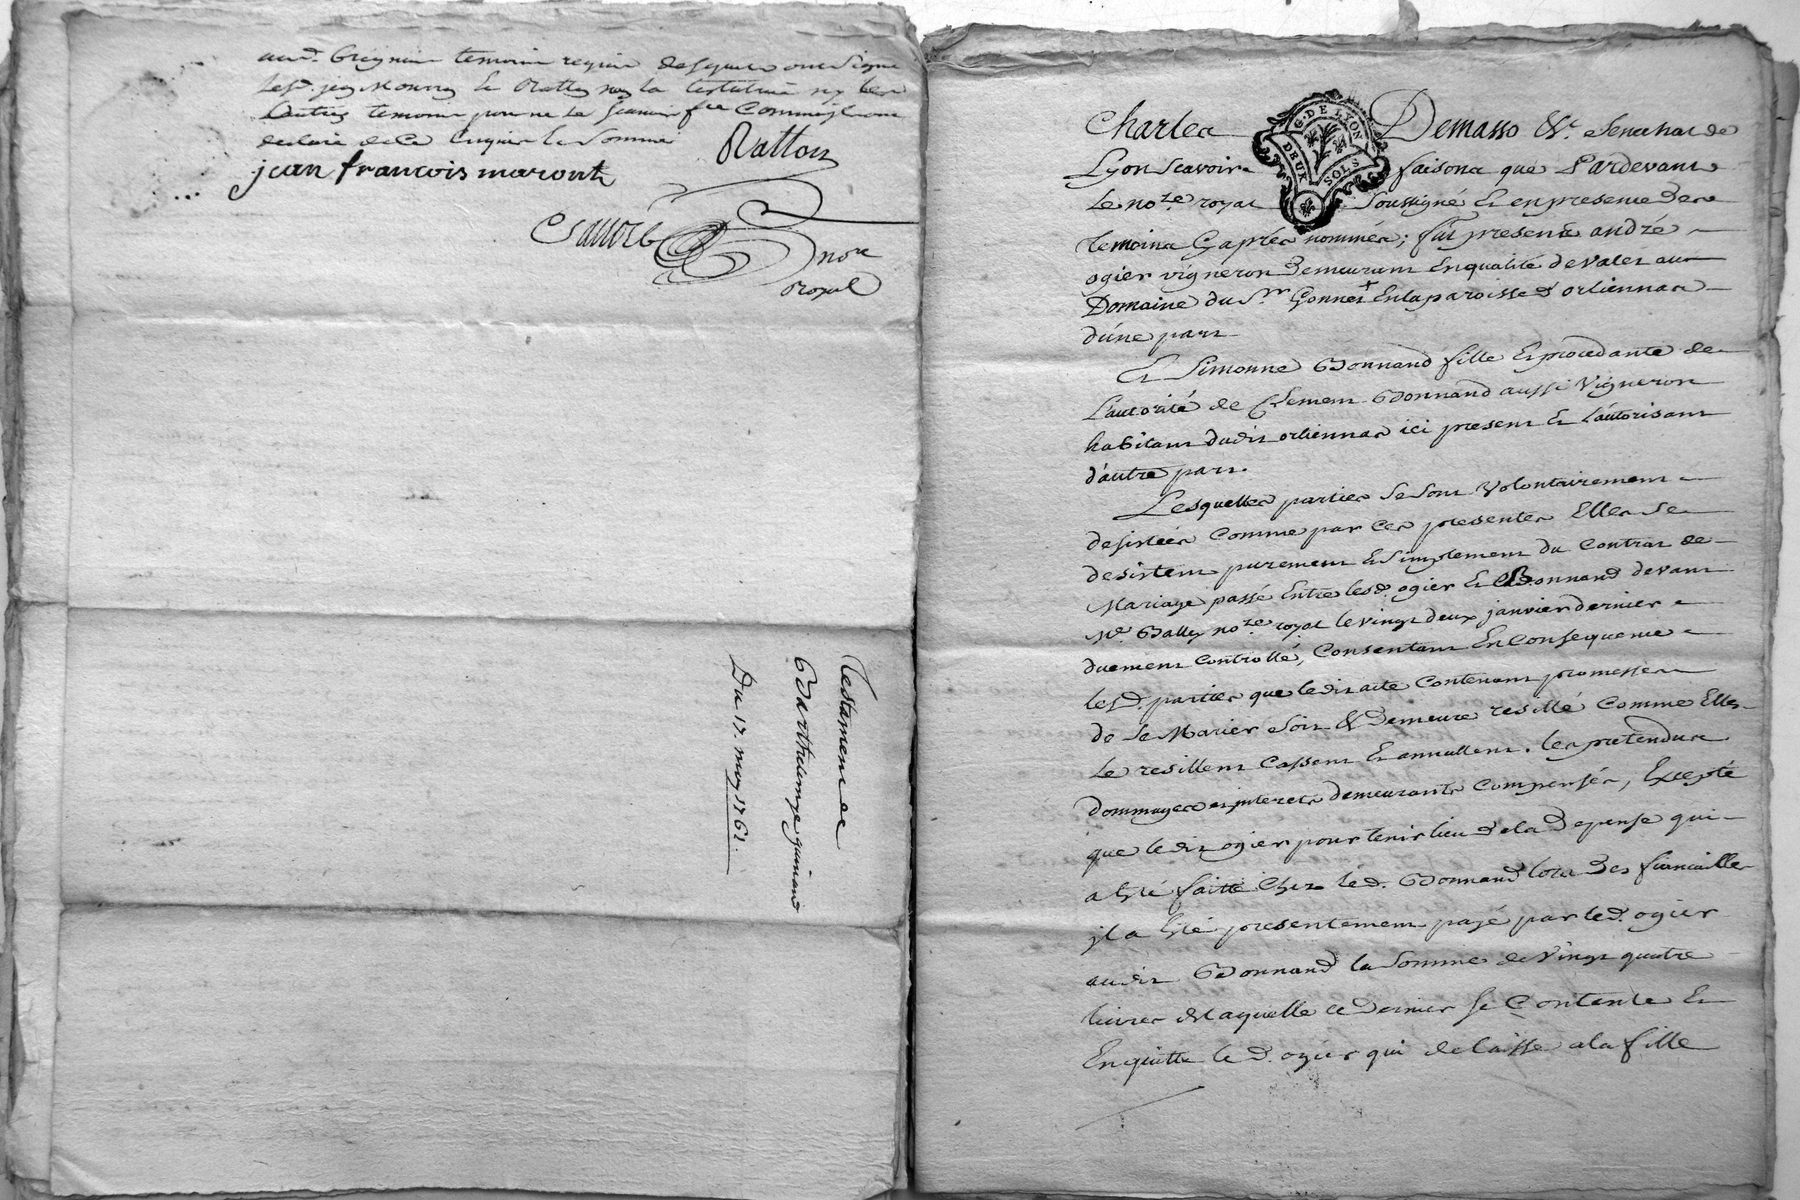 aud. temoin requis desquels ont signé
Led. jean le Ratton non la testatrice ny les
autres temoins pour ne le scavoir fce Comme ils ont
declaré de ce Enquis Le Sommé
Ratton
jean francois maronth
not.re
royal
Testament de
Barthelemye guinand
Du 17. may 1761.
Charles Demasso &c. Senechal de
G. DE LYON
DEUX SOLS
Lyon Scavoir faisons que Pardevant
Le no.re royal Soussigné Et en presence Des
temoins Cy aprés nommés; fut present andré
ogier vigneron Demeurant En qualité de valet au
Domaine du S.r Gonnet En la paroisse d'orliennas
d'une part
Et Simonne Bonnand fille Et procedante de
L'autorité de Clement Bonnand aussi Vigneron
habitant dudit orliennas ici present Et L'autorisant
d'autre part.
Lesquelles parties se sont Volontairement
desistées Comme par ces presentes Elles se
desistent purement Et Simplement du Contrat de
Mariage passé Entre lesd. ogier Et Bonnand devant
M.e Bally no.re royal le vingt deux janvier dernier
duement Controllé, Consentant En Consequence
lesd. parties que ledit acte Contenant promesses
de se Marier soit & Demeure resillé Comme Elles
Le resillent Cassent Et annullent. les pretendus
dommages et interets demeurants Compensés, Excepté
que ledit ogier pour tenir lieu de la Depense qui
a Eté faitte Chez led. Bonnand lors Des fiancailles
il a Eté presentement payé par led. ogier
audit Bonnand la Somme de Vingt quatre
livres de laquelle ce Dernier se Contente Et
En quitte le d. ogier qui delaisse a la fille